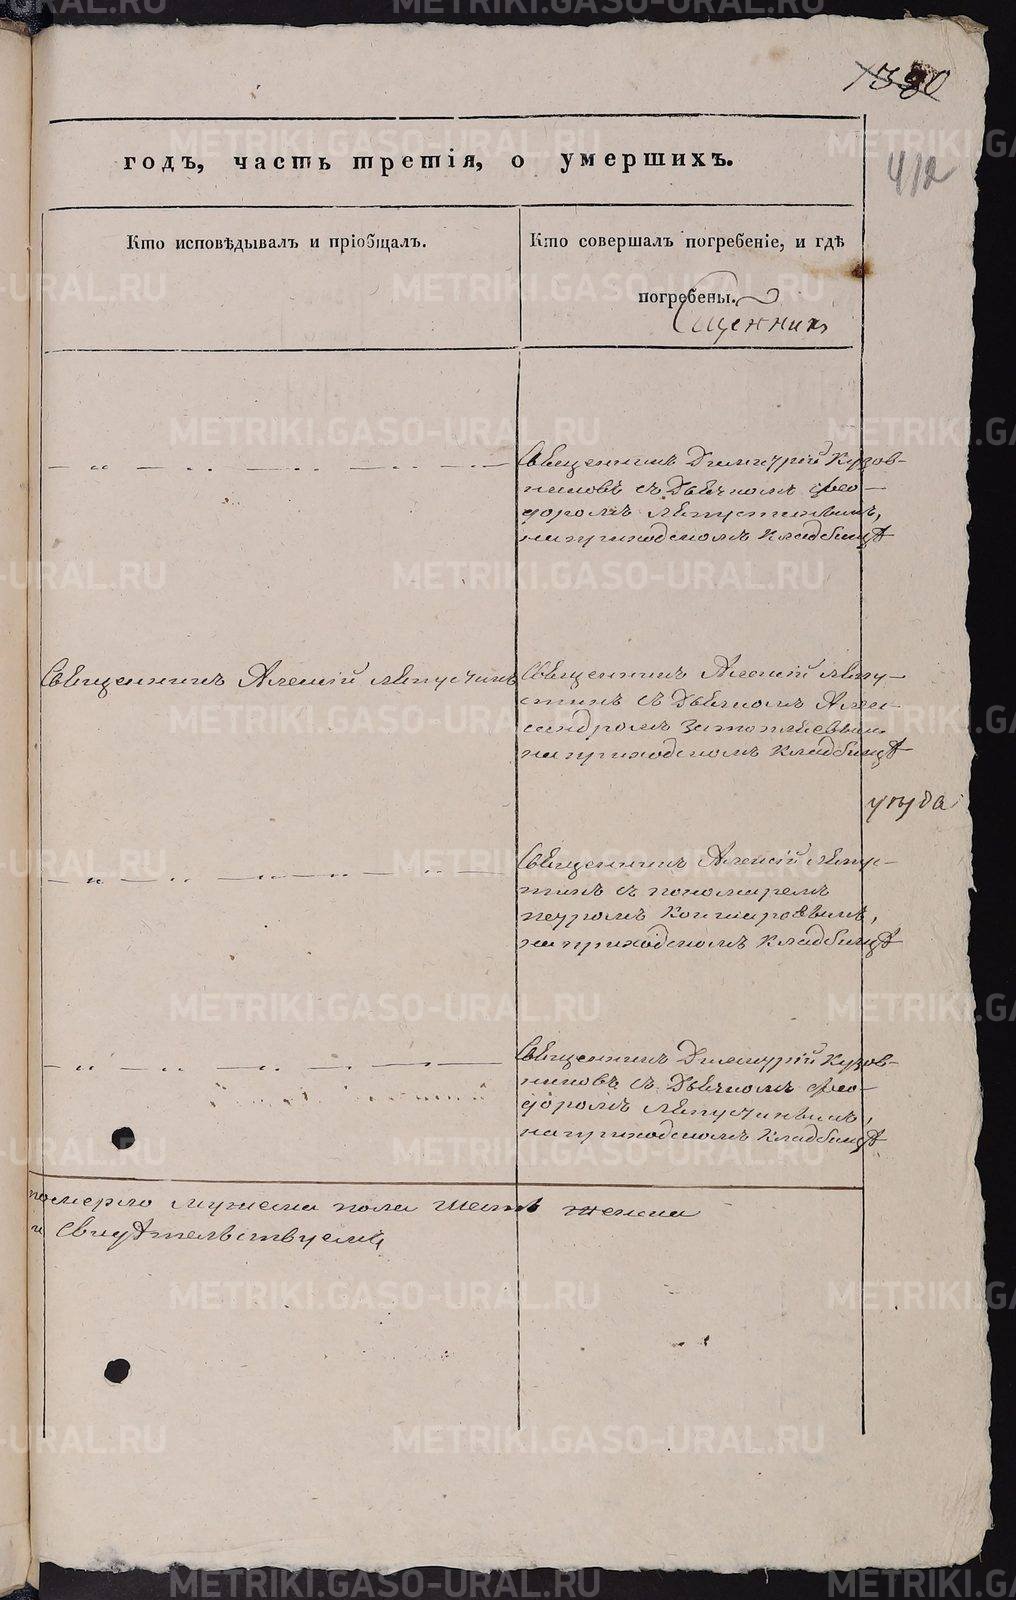 1380
412
годъ, часть третія, о умершихъ.
Кто исповѣдывалъ и пріобщалъ.
Кто совершалъ погребеніе, и гдѣ
погребены.
Сщенникъ
Священникъ Димитрій Кузов-
никовъ съ Дьячкомъ Ѳео-
доромъ Ляпустинымъ,
на приходскомъ кладбищѣ
Священникъ Алексій Ляпустинъ
Священникъ Алексій Ляпу-
стинъ съ Дьячкомъ Алек-
сандромъ
на приходскомъ кладбищѣ
Священникъ Алексій Ляпус-
тинъ съ пономаремъ
Петромъ
на приходскомъ кладбищѣ
Священникъ Димитрій Кузов-
никовъ съ Дьячкомъ Ѳео-
доромъ Ляпустинымъ,
на приходскомъ кладбищѣ
померло мужеска пола шесть женска
и свидѣтельствуемъ
METRIKI.GASO-URAL.RU